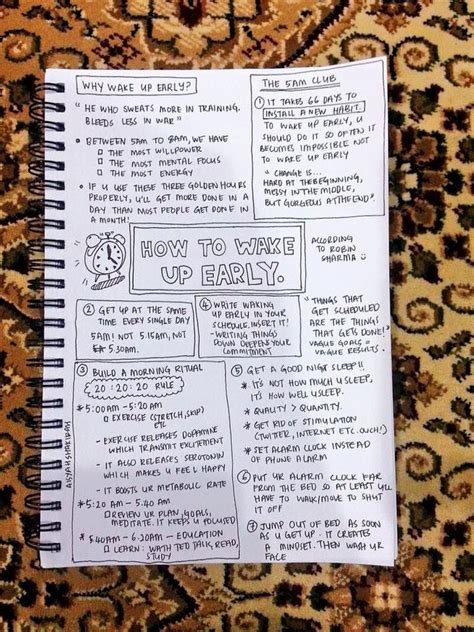 WHY WAKE UP EARLY?
" HE WHO SWEATS MORE IN TRAINING.
BLEEDS LESS IN WAR "
• BETWEEN 5AM TO 8AM, WE HAVE
□ THE MOST WILLPOWER
□ THE MOST MENTAL FOCUS
□ THE MOST ENERGY
• IF U USE THESE THREE GOLDEN HOURS
PROPERLY, U'LL GET MORE DONE IN A
DAY THAN MOST PEOPLE GET DONE IN
A MONTH!
THE 5AM CLUB
① IT TAKES 66 DAYS TO
INSTALL A NEW HABIT.
TO WAKE UP EARLY, U
SHOULD DO IT SO OFTEN IT
BECOMES IMPOSSIBLE NOT
TO WAKE UP EARLY
"CHANGE IS...
HARD AT THE BEGINNING,
MESSY IN THE MIDDLE,
BUT GORGEOUS AT THE END".
HOW TO WAKE
UP EARLY.
ACCORDING
TO ROBIN
SHARMA
② GET UP AT THE SAME
TIME EVERY SINGLE DAY
5AM! NOT 5.15AM, NOT
5.30AM.
④ WRITE WAKING
UP EARLY IN YOUR
SCHEDULE. INSERT IT!
- WRITING THINGS
DOWN DEEPENS YOUR
COMMITMENT
"THINGS THAT
GET SCHEDULED
ARE THE THINGS
THAT GETS DONE!"
VAGUE GOALS =
VAGUE RESULTS.
③ BUILD A MORNING RITUAL
20 : 20 : 20 RULE
* 5:00 AM - 5:20 AM
□ EXERCISE (STRETCH, SKIP)
ETC
- EXERCISE RELEASES DOPAMINE
WHICH TRANSMIT EXCITEMENT
- IT ALSO RELEASES SEROTONIN
WHICH MAKES U FEEL HAPPY
- IT BOOSTS UR METABOLIC RATE
* 5:20 AM - 5.40 AM
□ REVIEW UR PLAN, GOALS,
MEDITATE. IT KEEPS U FOCUSED
* 5:40AM - 6.30AM - EDUCATION
□ LEARN : WATH TED TALK, READ,
STUDY
⑤ GET A GOOD NIGHT SLEEP!!
* IT'S NOT HOW MUCH U SLEEP,
IT'S HOW WELL U SLEEP.
* QUALITY > QUANTITY.
* GET RID OF STIMULATION
(TWITTER, INTERNET ETC. OUCH!)
* SET ALARM CLOCK INSTEAD
OF PHONE ALARM
⑥ PUT YR ALARM CLOCK FAR
FROM THE BED SO AT LEAST U'LL
HAVE TO WALK/MOVE TO SHUT
IT OFF
⑦ JUMP OUT OF BED AS SOON
AS U GET UP. IT CREATES
A MINDSET. THEN WASH UR
FACE